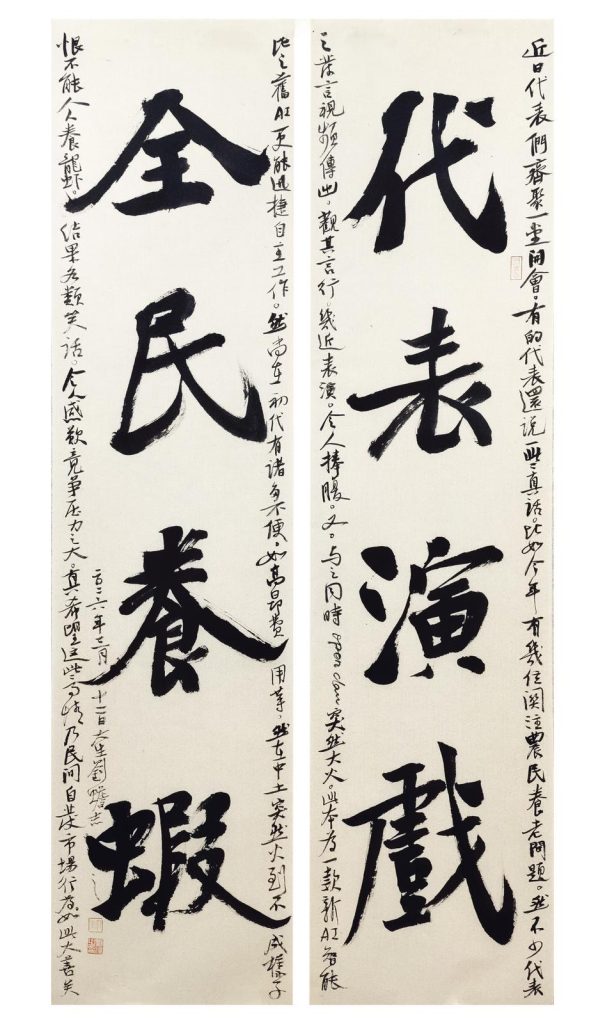 代表演戲
近日代表們齊聚一堂開會。有的代表還說一些真話。比如今年有幾位関注農民養老問題。然不少代表
之发言視頻傳出。觀其言行。幾近表演。令人捧腹。又。与之同時open claw突然大火。此本為一款新AI智能
全民養蝦
比之舊AI更能迅捷自主工作。然尚在初代有諸多不便。如高昂費用等。然在中土突然火到不成樣子
恨不能人人養龍虾。結果各類笑話。令人感歎竞争压力之大。真希望這些事情乃民间自发市場行為如此大善矣
二〇二六年三月十二日